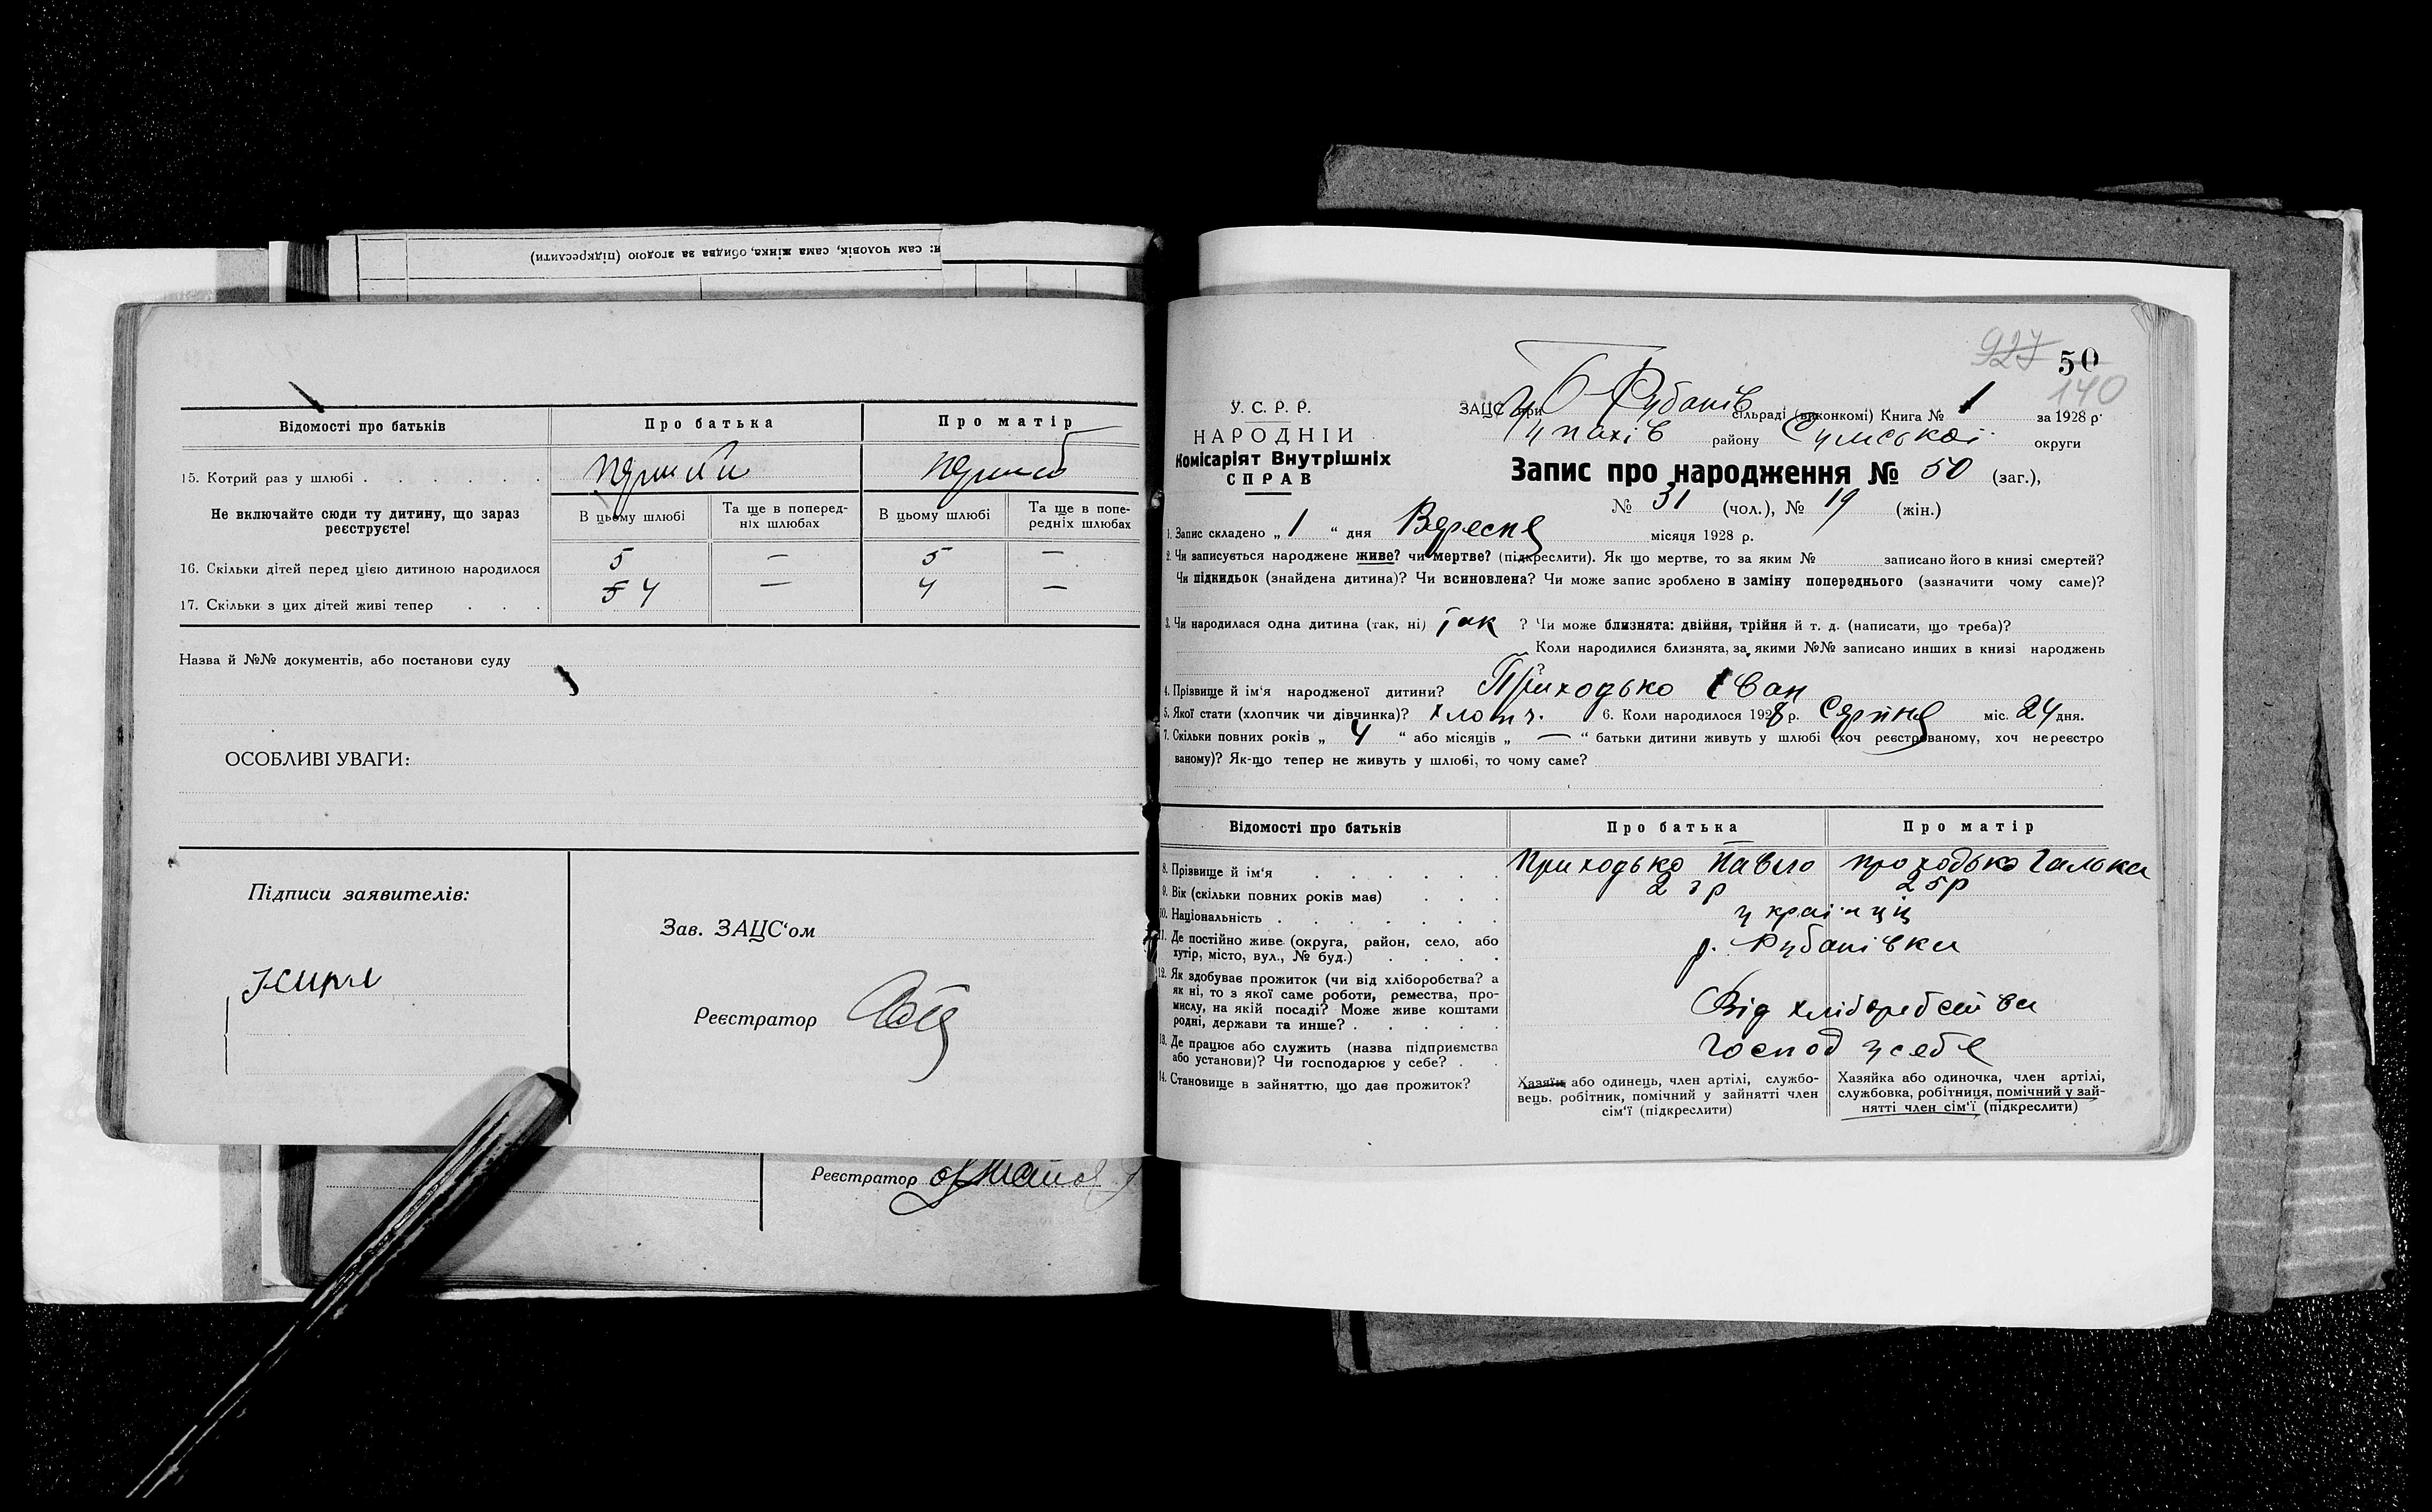 и: сам чоловік, сама жінка, обидва за згодою (підкреслити)
Відомості про батьків
Про батька
Про матір
15. Котрий раз у шлюбі . . . . . .
Не включайте сюди ту дитину, що зараз реєструєте!
В цьому шлюбі
Та ще в поперед-
ніх шлюбах
В цьому шлюбі
Та ще в попе-
редніх шлюбах
16. Скільки дітей перед цією дитиною народилося 5 — 5 —
17. Скільки з цих дітей живі тепер . . . 5 4 — 4 —
Назва й №№ документів, або постанови суду
ОСОБЛИВІ УВАГИ:
Підписи заявителів:
Зав. ЗАЦС‘ом
Реєстратор
Реєстратор
927 50
140
У. С. Р. Р.
НАРОДНІЙ
Комісаріят Внутрішніх
СПРАВ
ЗАЦС при Рубанів сільраді (виконкомі) Книга № 1 за 1928 р.
району Сумської округи
Запис про народження № 50 (заг.),
№ 31 (чол.), № 19 (жін.)
1. Запис складено „ 1 “ дня Вересня місяця 1928 р.
2. Чи записується народжене живе? чи мертве? (підкреслити). Як що мертве, то за яким № записано його в книзі смертей?
Чи підкидьок (знайдена дитина)? Чи всиновлена? Чи може запис зроблено в заміну попереднього (зазначити чому саме)?
3. Чи народилася одна дитина (так, ні) так ? Чи може близнята: двійня, трійня й т. д. (написати, що треба)?
Коли народилися близнята, за якими №№ записано инших в книзі народжень
4. Прізвище й ім‘я народженої дитини? Приходько Іван
5. Якої стати (хлопчик чи дівчинка)? хлопч. 6. Коли народилося 1928 р. Серпня міс. 24 дня.
7. Скільки повних років „ 4 “ або місяців „ — “ батьки дитини живуть у шлюбі (хоч реєстрованому, хоч нереєстро
ваному)? Як-що тепер не живуть у шлюбі, то чому саме?
Відомості про батьків
Про батька
Про матір
8. Прізвище й ім‘я . . . . . . Приходько Павло Приходько Галька
9. Вік (скільки повних років має) . . . 25р
10. Національність . . . . . . . українці
11. Де постійно живе (округа, район, село, або
хутір, місто, вул., № буд.) . . . . Рубанівка
12. Як здобуває прожиток (чи від хліборобства? а
як ні, то з якої саме роботи, ремества, про-
мислу, на якій посаді? Може живе коштами
родні, держави та инше? . . . . . Від хліборобства
13. Де працює або служить (назва підприємства
або установи)? Чи господарює у себе? . . господ у себе
14. Становище в зайняттю, що дає прожиток?
Хазяїн або одинець, член артілі, службо-
вець, робітник, помічний у зайнятті член
сім‘ї (підкреслити)
Хазяйка або одиночка, член артілі,
службовка, робітниця, помічний у зай-
нятті член сім‘ї (підкреслити)